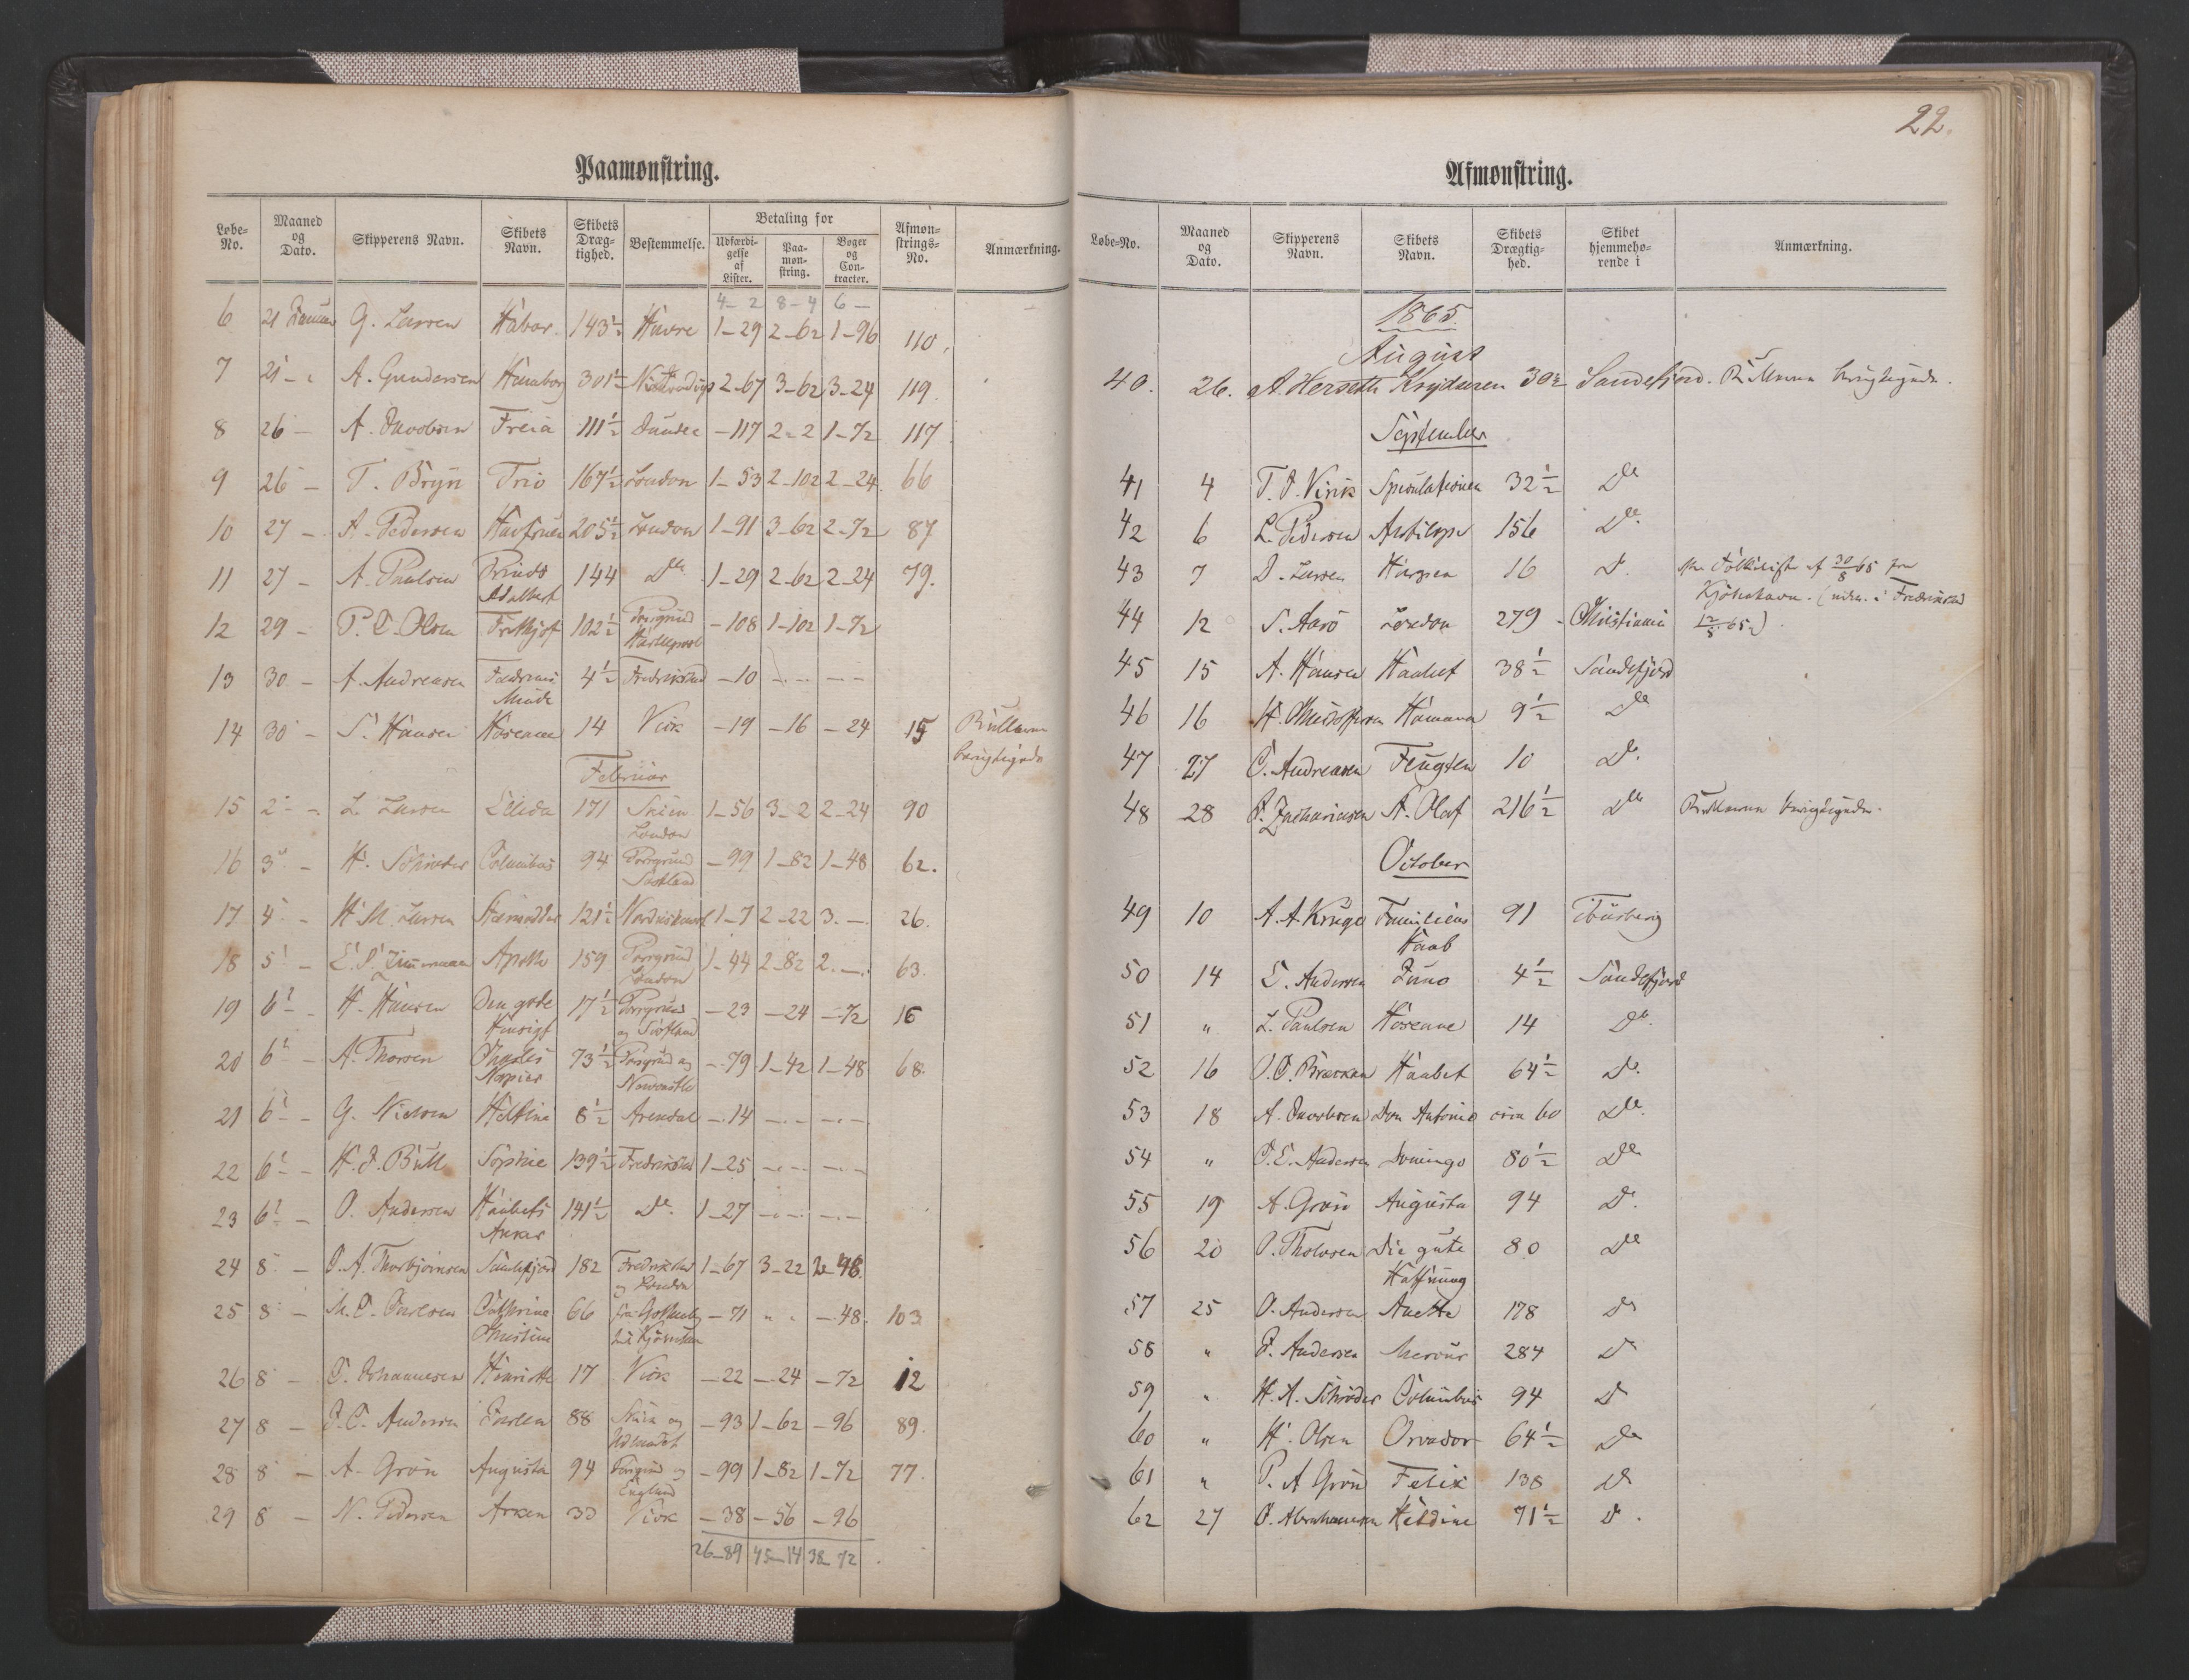 Paamønstring.
Løbe-No. Maaned og Dato. Skipperens Navn. Skibets Navn. Skibets Dræg-tighed. Bestemmelse. Betaling for Udfærdi-gelse af Lister. Paa-møn-string. Bøger og Con-tracter. Afmøn-strings-No. Anmærkning.
4-2 8-4 6-
6 21 Januar G. Larsen Habor 143½ Havre 1-29 2-62 1-96 110.
7 21 - A. Gundersen 301½ 2-67 3-62 3-24 119.
8 26 - A. Jacobsen Freia 111½ Dundee -117 2-2 1-72 117
9 26 - T. Bryn Trio 167½ London 1-53 2-102 2-24 66
10 27 - A. Pedersen Havfruen 205½ London 1-91 3-62 2-72 87
11 27 - A. Paulsen Prinds Adalbert 144 Do 1-29 2-62 2-24 79.
12 29 - P. C. Olsen Frithjof 102½ Porsgrund Hartlepool -108 1-102 1-72
13 30 - A. Andreasen Fædrenes Minde 4½ Fredrikstad -10 - -
14 30 - S. Hansen Hoseanne 14 Vivk -19 -16 -24 15 Rullerne berigtigede
Februar
15 2 - L. Larsen Ellida 171 Skien London 1-56 3-2 2-24 90
16 3 - H. Schrøder Columbus 94 Porsgrund -99 1-82 1-48 62.
17 4 - H. M. Larsen 121½ 1-7 2-22 3.- 26.
18 5 - Apollo 159 Porsgrund London 1-44 2-82 2.- 63.
19 6 - H. Hansen Den gode Hensigt 17½ Porsgrund og -23 -24 -72 16
20 6 - A. Thorsen Charles Napier 73½ Porsgrund og Newcastle -79 1-42 1-48 68.
21 6 - G. Nielsen 8½ Arendal -14 - -
22 6 - H. J. Bull Sophie 139½ Fredrikstad 1-25 - -
23 6 - O. Andersen Haabets Anker 141½ Do 1-27 - -
24 8 - O. A. Thorbjørnsen Sandefjord 182 Fredrikstad og London 1-67 3-22 2-48
25 8 - M. C. Carlsen Cathrine Christine 66 fra til Kjøbenhavn -71 " " -48 103
26 8 - C. Johannesen Henriette 17 Vivk -22 -24 -72 12
27 8 - J. C. Andersen 88 Skien og Udlandet -93 1-62 -96 89.
28 8 - A. Grøn Augusta 94 Porsgrund og England -99 1-82 1-72 77.
29 8 - N. Pedersen Arken 33 Vivk -38 -56 -96
26-89 45-14 38-72
22.
Afmønstring.
Løbe-No. Maaned og Dato. Skipperens Navn. Skibets Navn. Skibets Drægtig-hed. Skibet hjemmehø-rende i Anmærkning.
1865
August
40. 26. A. Herseth Krydseren 30½ Sandefjord. Rullerne berigtigede.
September
41 4 T. O. Virik Speculationen 32½ Do
42 6 L. Pedersen Antilope 156 Do
43 7 O. Larsen 16 Do Folkeliste af 30/8 65 fra
Kjøbenhavn. i Fredrikstad
44 12 S. Aarø London 279 - Christiania 12/5 65)
45 15 A. Hansen Haabet 38½ Sandefjord
46 16 H. Christophersen 9½ Do
47 27 C. Andreasen Flugten 10 Do
48 28 Zachariasen St. Olaf 216½ Do Rullerne berigtigede.
October
49 10 A. A. Kruge Familiens Haab 91 Tønsberg
50 14 E. Andersen Juno 4½ Sandefjord
51 " L. Paulsen Hoseanne 14 Do
52 16 Haabet 64½ Do
53 18 A. Jacobsen Don Antonio circa 60 Do
54 " C. E. Andersen Domingo 80½ Do
55 19 A. Grøn Augusta 94 Do
56 20 O. Tholvsen Die gute Hoffnung 80 Do
57 25 O. Andersen Anetta 178 Do
58 " J. Andersen Mercur 284 Do
59 " H. A. Schrøder Columbus 94 Do
60 " H. Olsen Orvador 64½ Do
61 " P. A Grøn Felix 138 Do
62 27 O. Abrahamsen Heldine 71½ Do.